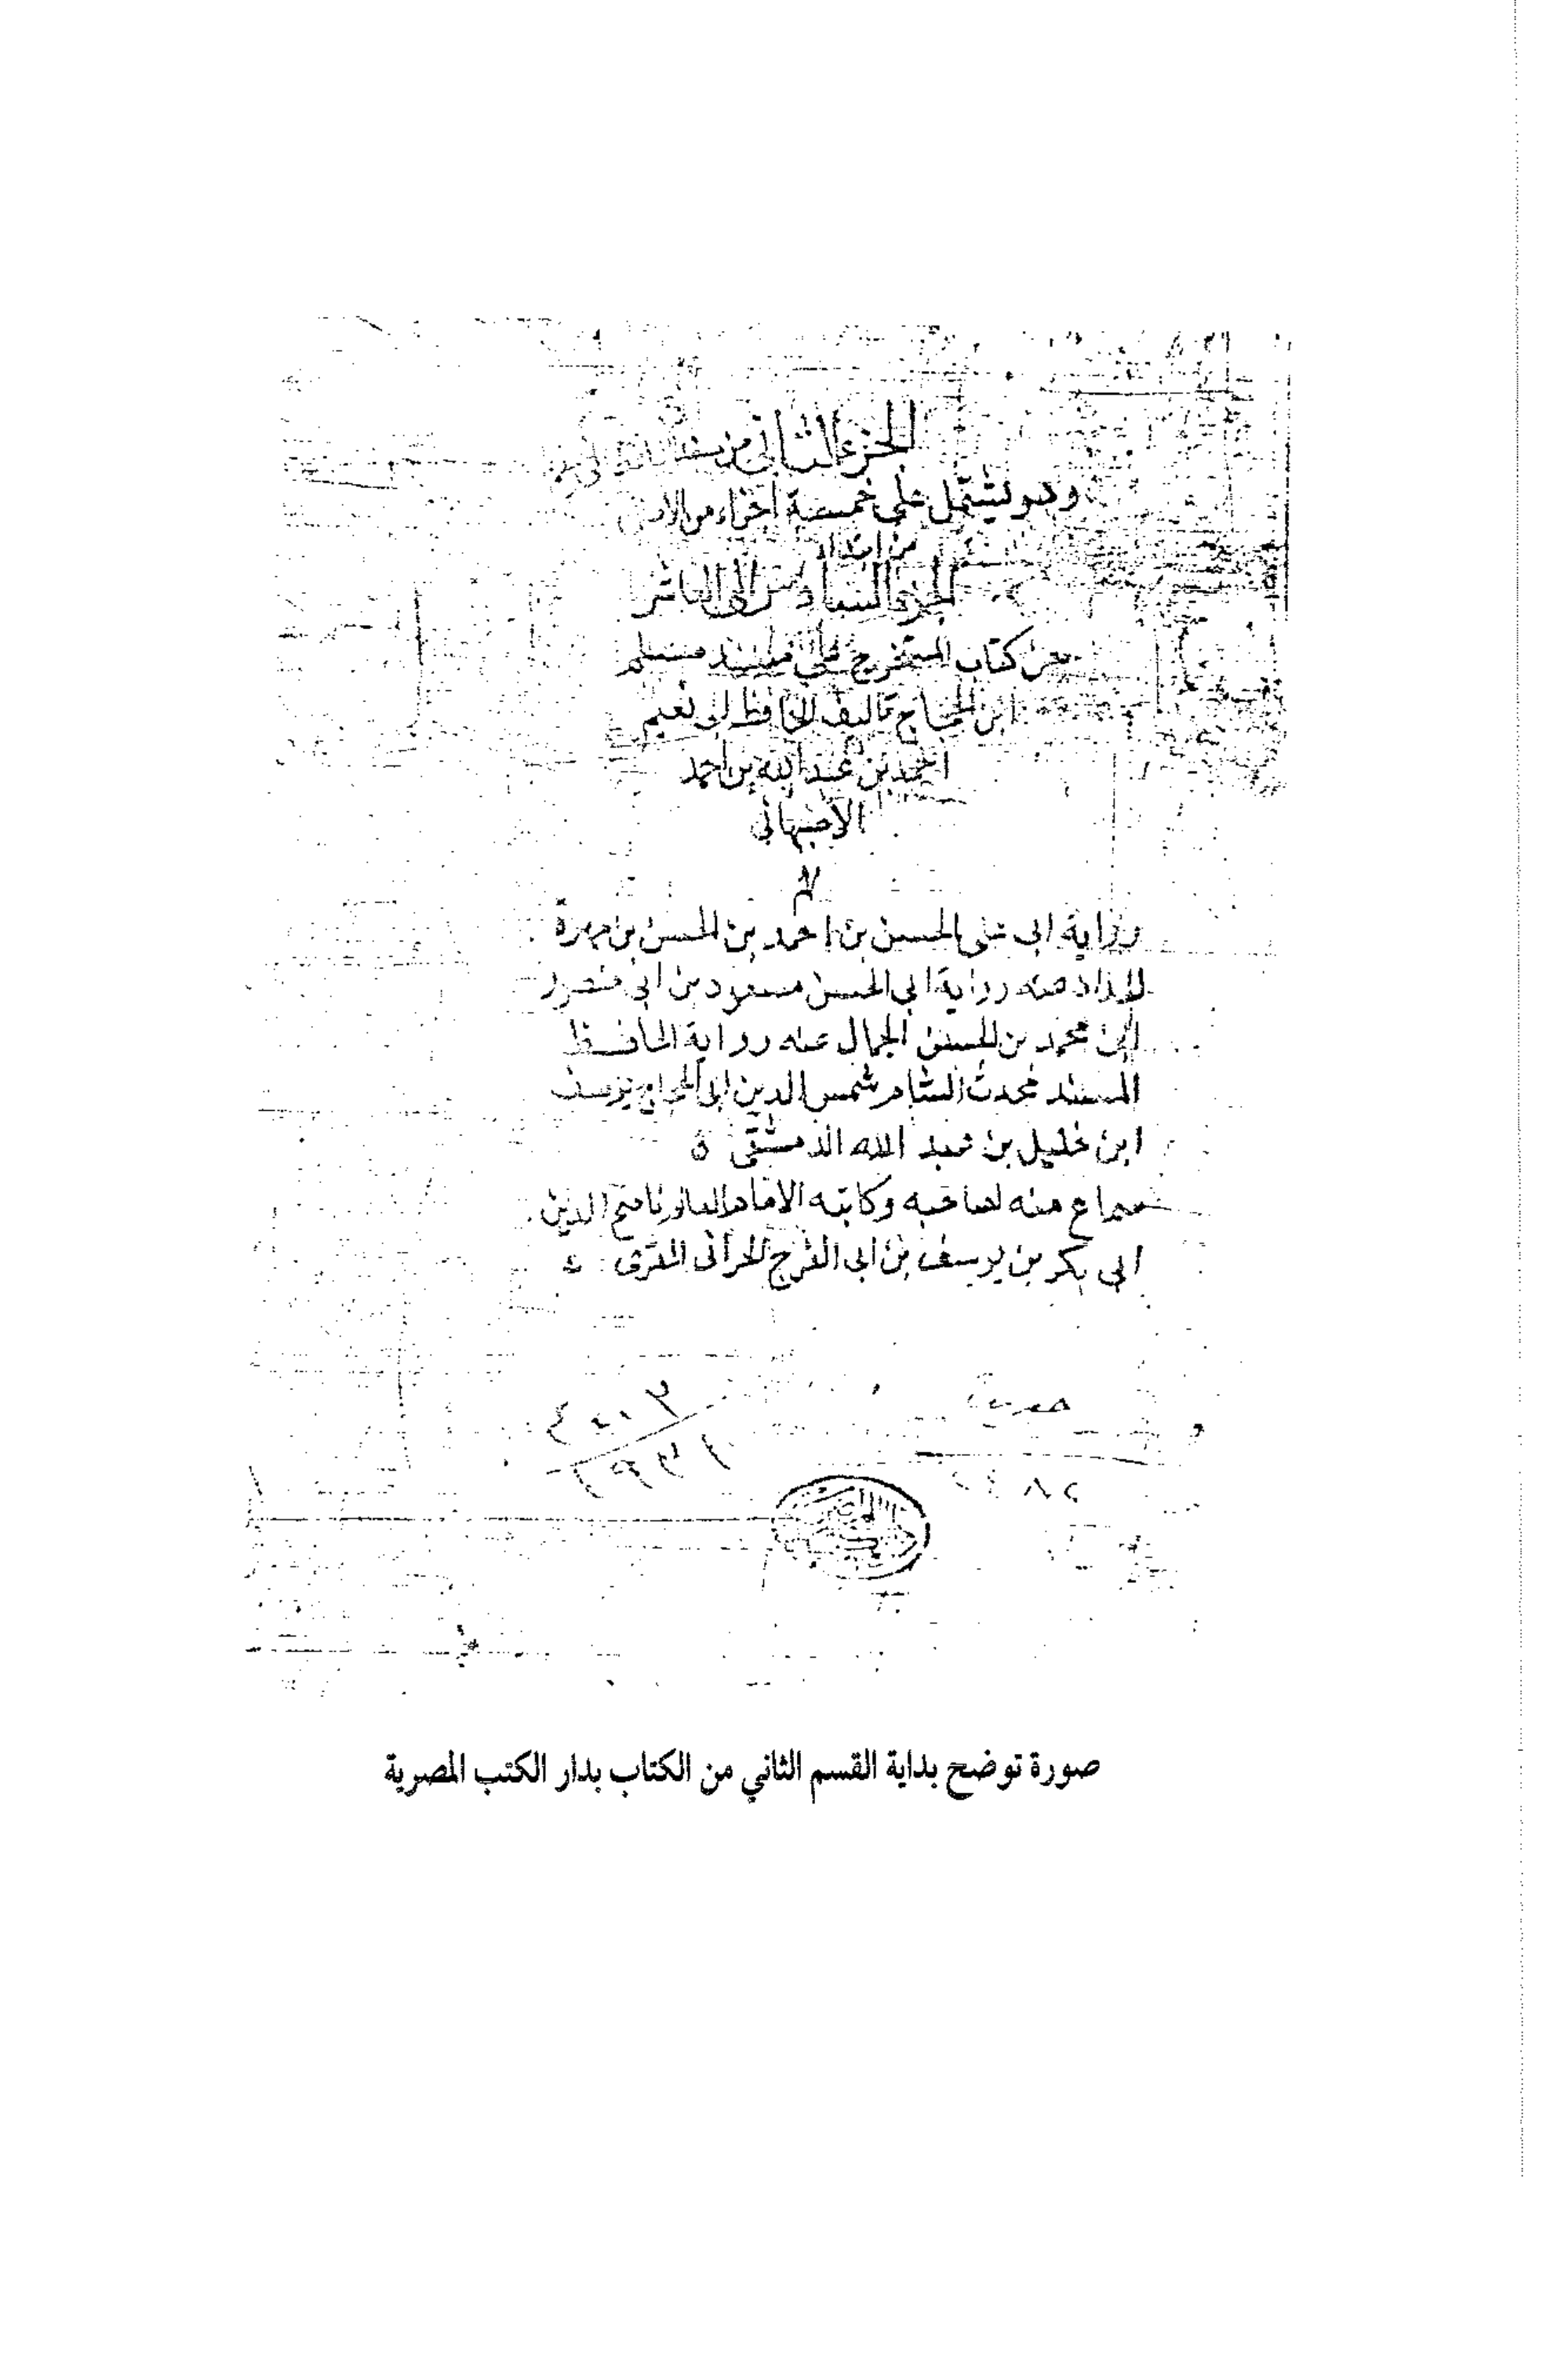 الجزء الثاني من
وهو يشتمل على خمسة اجزاء من الا
من ابتداء
الجزء السادس الى العاشر
من كتاب المستخرج على مسند مسلم
ابن الحجاج تاليف الحافظ ابى نعيم
احمد بن عبد الله بن احمد
الاصبهاني
رواية ابى على الحسن بن احمد بن الحسن بن مهرة
الحداد عنه رواية ابى الحسن مسعود بن ابى منصور
ابن محمد بن الحسن الجمال عنه رواية الحافظ
المسند محدث الشام شمس الدين ابى الحجاج يوسف
ابن خليل بن عبد الله الدمشقى
سماع منه لصاحبه وكاتبه الامام العالم ناصح الدين
ابى بكر بن يوسف بن ابى الفرج الحرانى المقرى
صورة توضح بداية القسم الثاني من الكتاب بدار الكتب المصرية